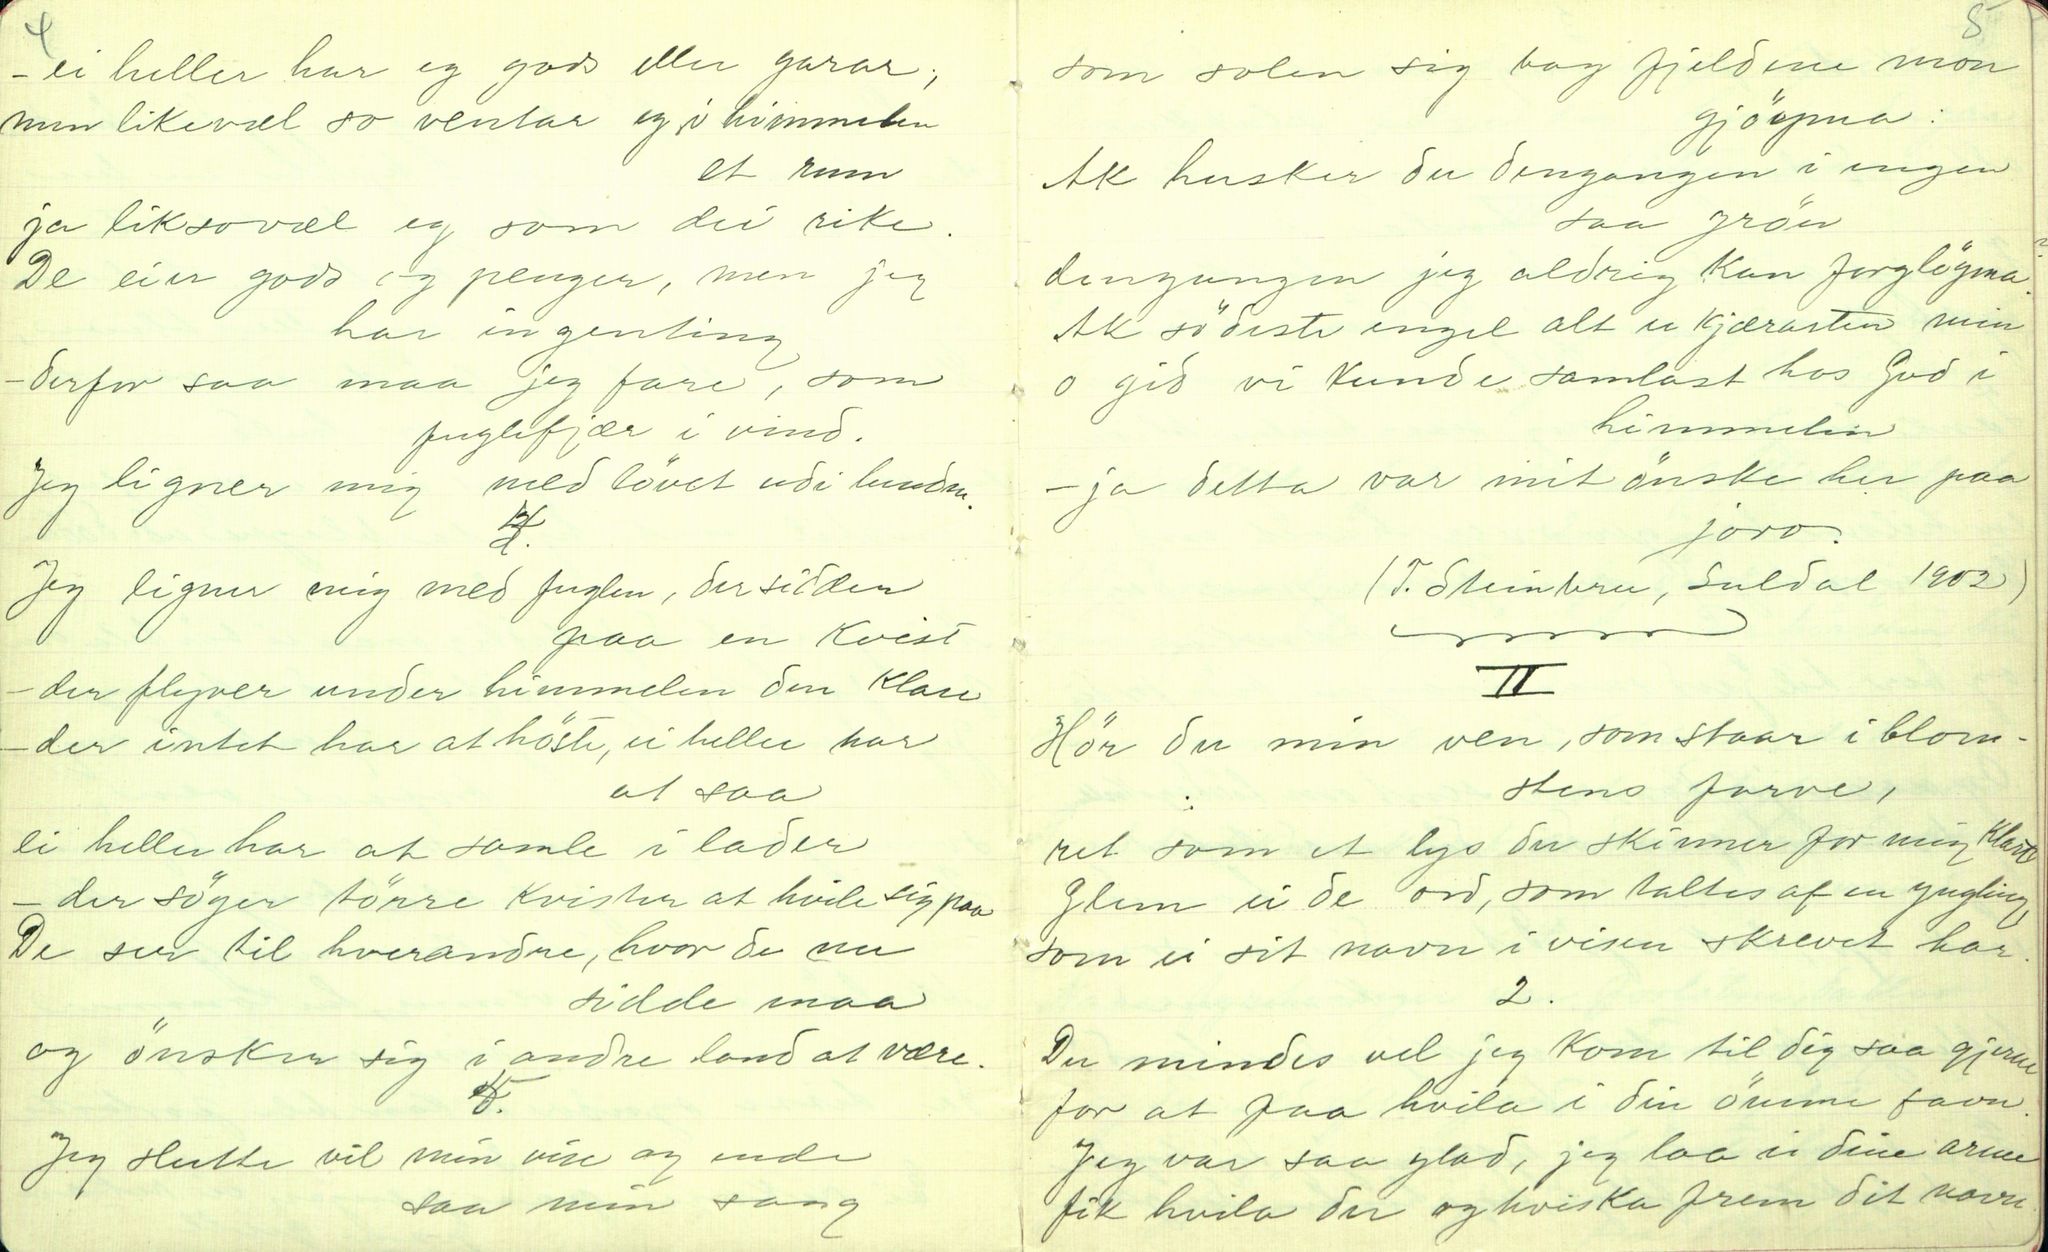 4
- ei heller har eg gods eller garar,
men likevæl so ventar eg i himmelen
et rum
ja liksovæl eg som dei rike.
De eier gods og penger, men jeg
har ingenting
- derfor saa maa jeg fare, som
fuglefjær i vind.
Jeg ligner mig med lövet udi lunden.
Jeg ligner mig med fuglen, der sidder
paa en kvist
- der flyver under himmelen den klare
- der intet har at höste, ei heller har
at saa
ei heller har at samle i lader
- der söger törre kvister at hvile sig paa
De ser til hverandre, hvor de nu
sidde maa
og önsker sig i andre land at være.
5.
Jeg slutte vil min vise og ende
saa min sang
5
som solen sig bag fjeldene mon
gjöyma:
Ak husker du dengangen i engen
saa grön
dengangen jeg aldrig kan forglöyma.
Ak södeste engel alt er kjærasten min
o gid vi kunde samlast hos Gud i
himmelen
- ja detta var mit önske her paa
joro.
(T. Steinbru, Suldal 1902)
II
Hör du min ven, som staar i blom-
stens farve,
ret som et lys du skinner for mig klart
Glem ei de ord, som taltes af en yngling,
som ei sit navn i visen skrevet har.
2.
Du mindes vel jeg kom til dig saa gjerne
for at faa hvila i din ömme favn.
Jeg var saa glad, jeg laa i dine arme
fik hvila der og hviska frem dit navn.